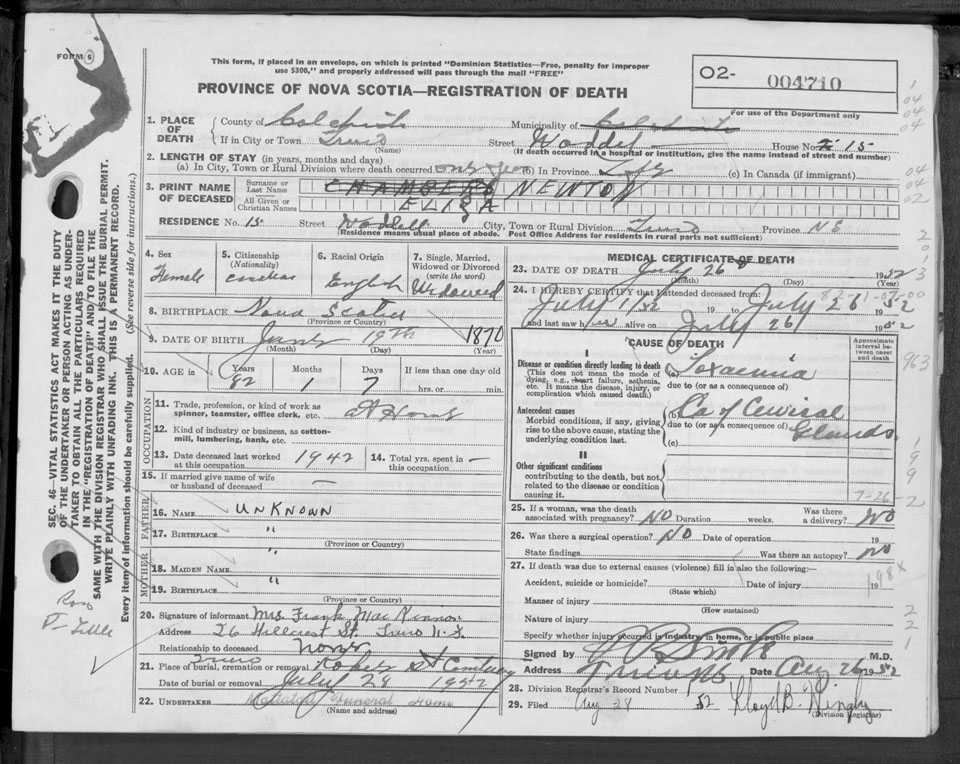 FORM 6
This form, if placed in an envelope, on which is printed "Dominion Statistics—Free, penalty for improper
use $300," and properly addressed will pass through the mail "FREE"
PROVINCE OF NOVA SCOTIA—REGISTRATION OF DEATH
O2- 004710
For use of the Department only
1. PLACE OF DEATH
County of Colchester Municipality of Colchester
If in City or Town Truro (Name) Street Waddell House No. 15
(If death occurred in a hospital or institution, give the name instead of street and number)
2. LENGTH OF STAY (in years, months and days)
(a) In City, Town or Rural Division where death occurred one year (b) In Province Life (c) In Canada (if immigrant)
3. PRINT NAME OF DECEASED
Surname or Last Name CHAMBERS NEWTON
All Given or Christian Names ELIZA
RESIDENCE No. 15 Street Waddell City, Town or Rural Division Truro Province N S
(Residence means usual place of abode. Post Office Address for residents in rural parts not sufficient)
4. Sex Female
5. Citizenship (Nationality)
6. Racial Origin English
7. Single, Married, Widowed or Divorced (write the word) Widowed
8. BIRTHPLACE Nova Scotia
(Province or Country)
9. DATE OF BIRTH June 19th 1870
(Month) (Day) (Year)
10. AGE in Years 82 Months 1 Days 7 If less than one day old hrs. or min.
OCCUPATION
11. Trade, profession, or kind of work as spinner, teamster, office clerk, etc. At Home
12. Kind of industry or business, as cotton-mill, lumbering, bank, etc.
13. Date deceased last worked at this occupation 1942
14. Total yrs. spent in this occupation —
15. If married give name of wife or husband of deceased —
FATHER
16. NAME UNKNOWN
17. BIRTHPLACE "
(Province or Country)
MOTHER
18. MAIDEN NAME "
19. BIRTHPLACE "
(Province or Country)
20. Signature of informant Mrs. Frank MacKinnon
Address 26 Hillcrest St. Truro N.S.
Relationship to deceased none
21. Place of burial, cremation or removal Truro Robie St Cemetery
Date of burial or removal July 28 1952
22. UNDERTAKER Funeral Home
(Name and address)
MEDICAL CERTIFICATE OF DEATH
23. DATE OF DEATH July 26 1952
(Month) (Day)
24. I HEREBY CERTIFY that I attended deceased from:
July 1/52 19 to July 26 1952
and last saw her alive on July 26 1952
CAUSE OF DEATH
Approximate interval between onset and death
I
Disease or condition directly leading to death
(This does not mean the mode of dying, e.g., heart failure, asthenia, etc. It means the disease, injury, or complication which caused death.)
(a) Toxaemia
due to (or as a consequence of)
Antecedent causes
Morbid conditions, if any, giving rise to the above cause, stating the underlying condition last.
(b) Ca of Cervical
due to (or as a consequence of) Glands.
(c)
II
Other significant conditions
contributing to the death, but not related to the disease or condition causing it.
7-26-2
25. If a woman, was the death associated with pregnancy? NO Duration weeks. Was there a delivery? NO
26. Was there a surgical operation? NO Date of operation 19
State findings Was there an autopsy? NO
27. If death was due to external causes (violence) fill in also the following:—
Accident, suicide or homicide? Date of injury 19
(State which)
Manner of injury
(How sustained)
Nature of injury
Specify whether injury occurred in industry, in home, or in public place
Signed by M.D.
Address Truro NS Date Aug 26 1952
28. Division Registrar's Record Number
29. Filed Aug 28 52
(Division Registrar)
SEC. 46—VITAL STATISTICS ACT MAKES IT THE DUTY
OF THE UNDERTAKER OR PERSON ACTING AS UNDER-
TAKER TO OBTAIN ALL THE PARTICULARS REQUIRED
IN THE "REGISTRATION OF DEATH" AND/TO FILE THE
SAME WITH THE DIVISION REGISTRAR WHO SHALL ISSUE THE BURIAL PERMIT.
WRITE PLAINLY WITH UNFADING INK. THIS IS A PERMANENT RECORD.
Every item of information should be carefully supplied. (See reverse side for instructions.)